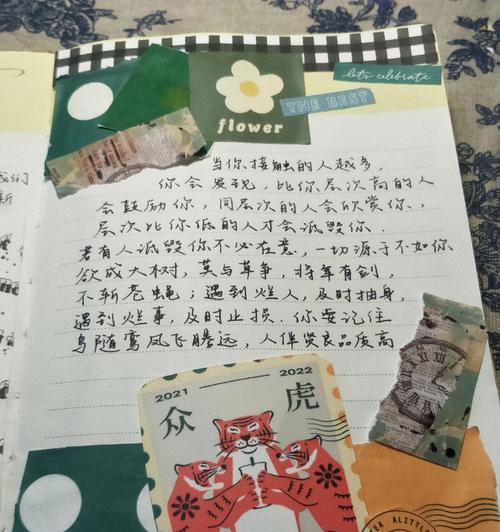 let's celebrate
THE BEST
flower
当你接触的人越多,
你会发现,比你层次高的人
会鼓励你,同层次的人会欣赏你,
层次比你低的人才会诋毁你.
若有人诋毁你不必在意,一切源于不如你
欲成大树,莫与草争,将军有剑,
不斩苍蝇;遇到烂人,及时抽身,
遇到烂事,及时止损.你要记住
鸟随鸾凤飞腾远,人伴贤良品质高
2021
2022
众
虎